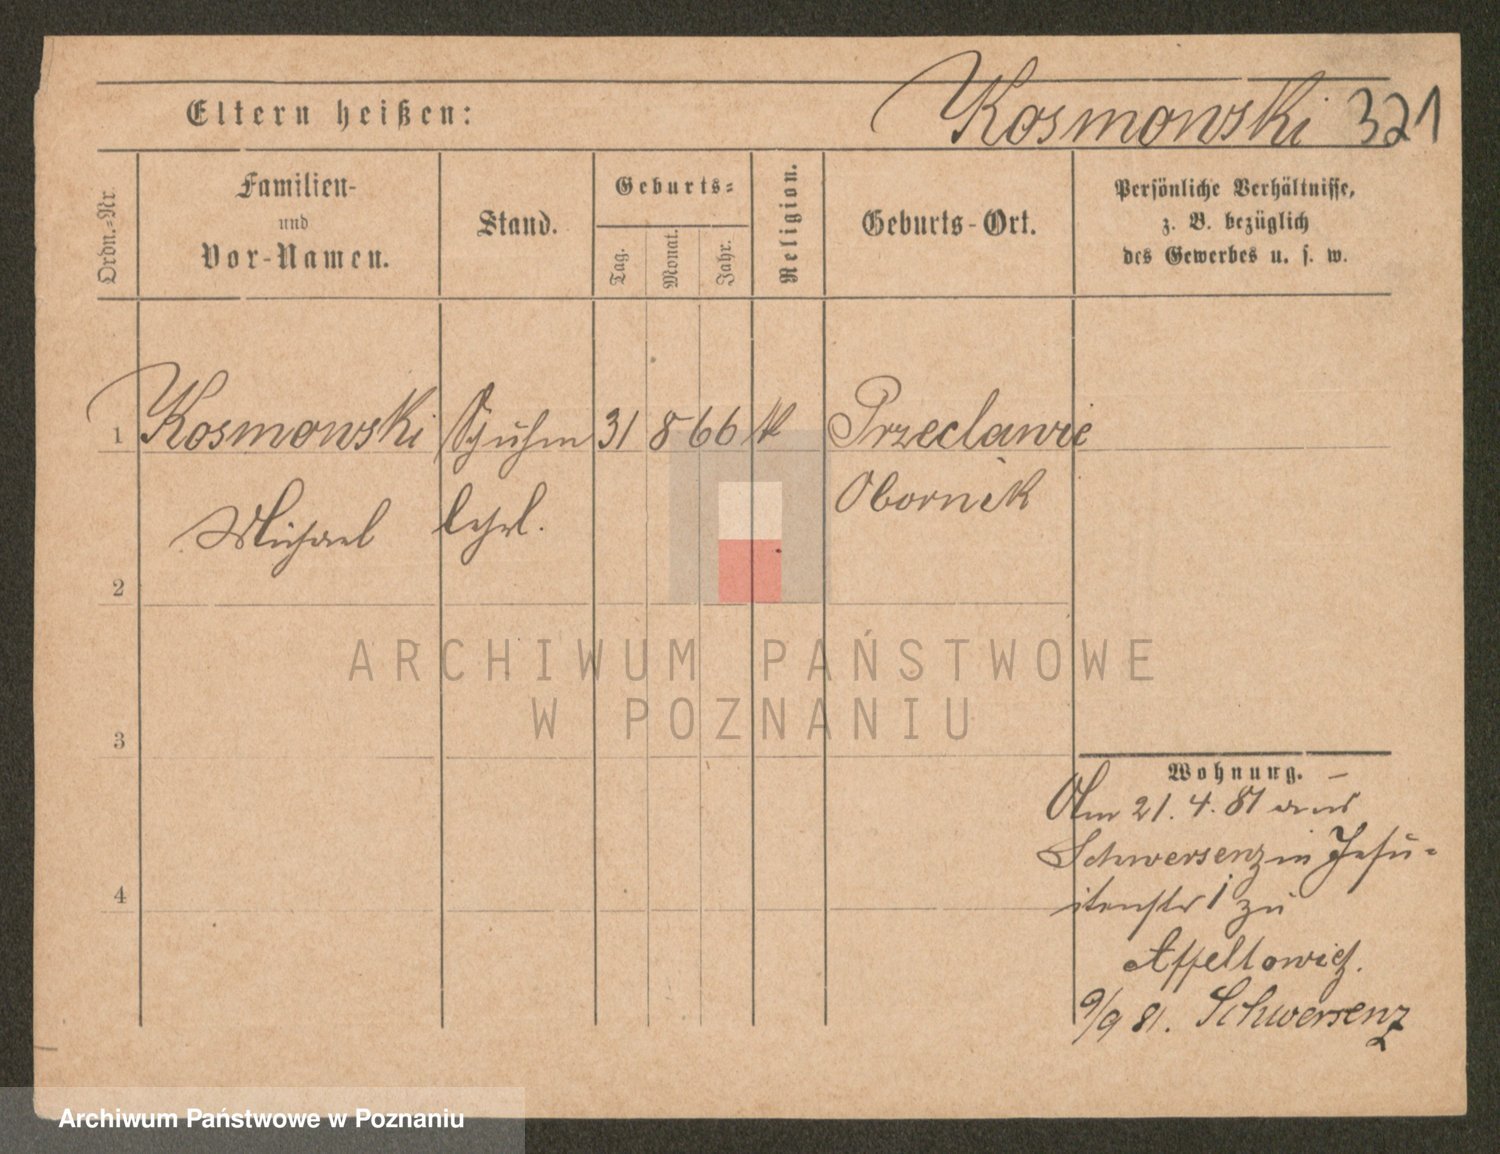 Eltern heißen: Kosmowski 321
Ordn.-Nr.
Familien-
und
Vor-Namen.
Stand.
Geburts-
Tag.
Monat.
Jahr.
Religion.
Geburts-Ort.
Persönliche Verhältnisse,
z. B. bezüglich
des Gewerbes u. s. w.
1 Kosmowski Schuhm 31 8 66 k Przeclawie
Michael lehrl. Obornik
2
3
4
ARCHIWUM PAŃSTWOWE
W POZNANIU
Wohnung.
Am 21.4.81 aus
Schwersenz in Jesu-
itenstr 1 zu
9/9 81. Schwersenz
Archiwum Państwowe w Poznaniu